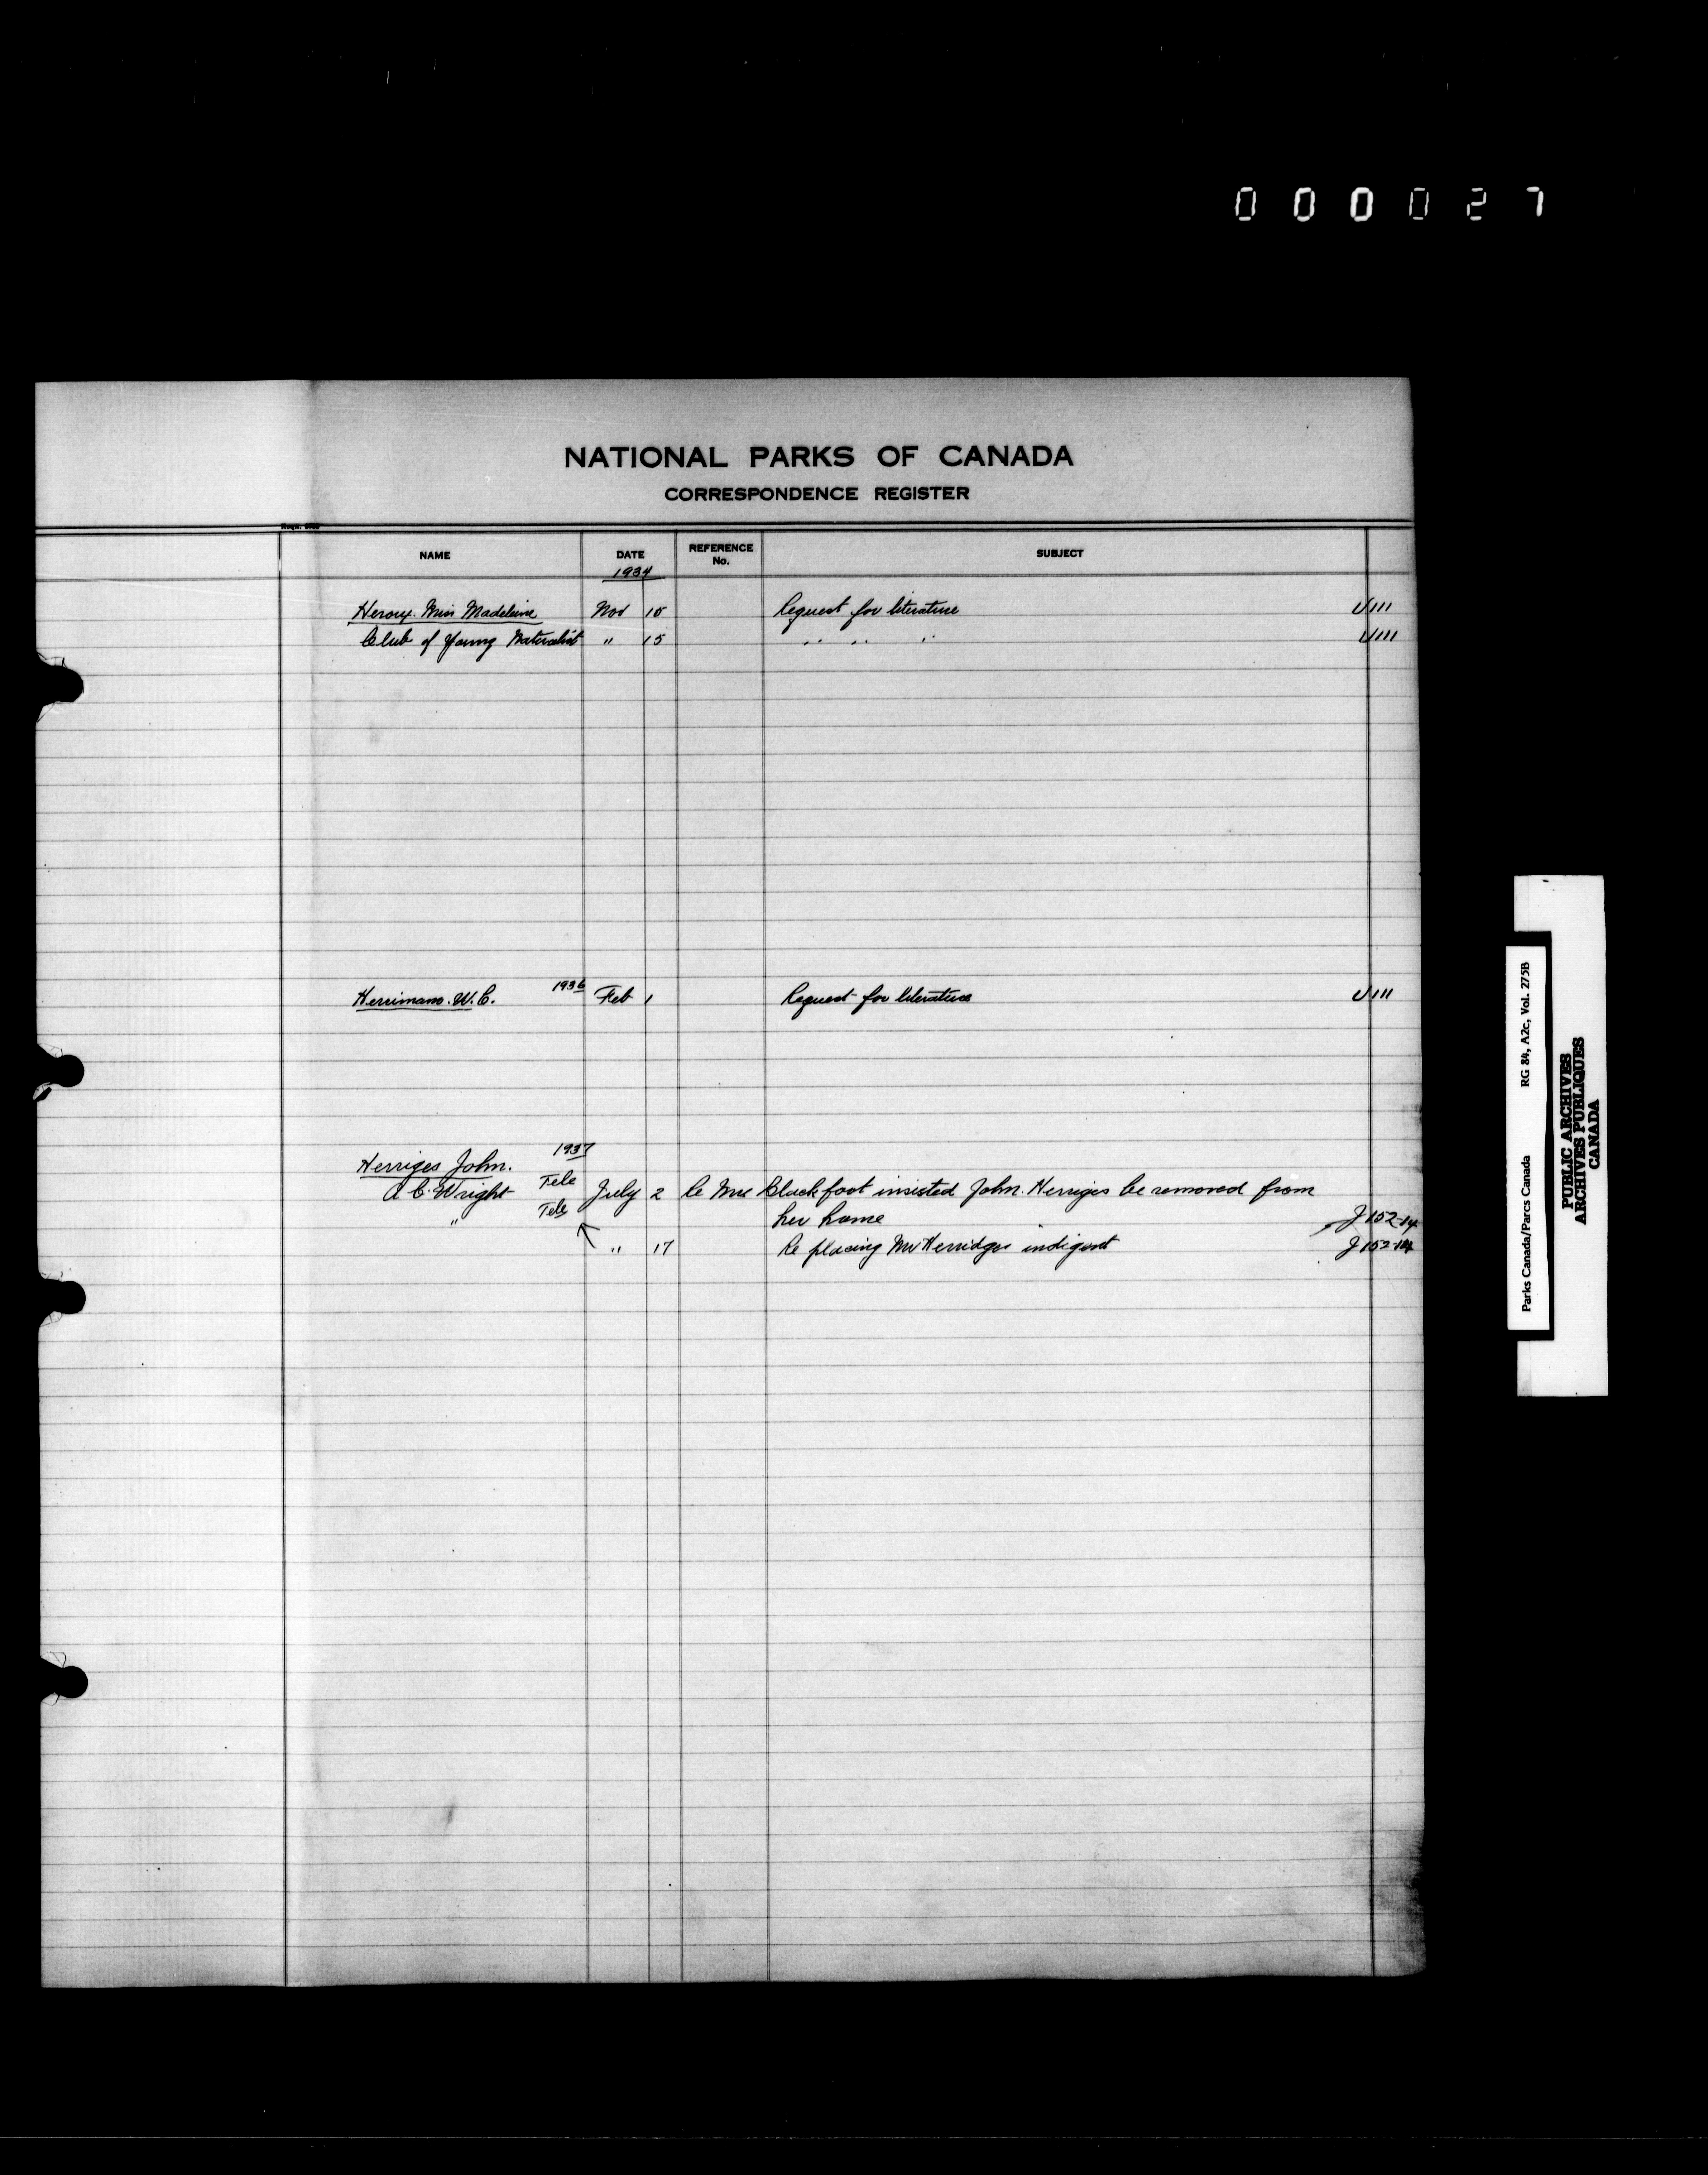 000027
NATIONAL PARKS OF CANADA
CORRESPONDENCE REGISTER
NAME DATE REFERENCE No. SUBJECT
1934
Heroux. Miss Madeleine Nov 15 Request for literature U111
Club of Young Naturalist " 15 " " " U111
Herrimans. W. C. 1936 Feb 1 Request for literature U111
Herriges John. 1937
A. C. Wright Tele July 2 Re Mrs Blackfoot insisted John Herriges be removed from
" Tele her home J152-14
" 17 Re placing Mr Herridges indigent J152-14
Parks Canada/Parcs Canada RG 84, A2c, Vol. 275B
PUBLIC ARCHIVES
ARCHIVES PUBLIQUES
CANADA